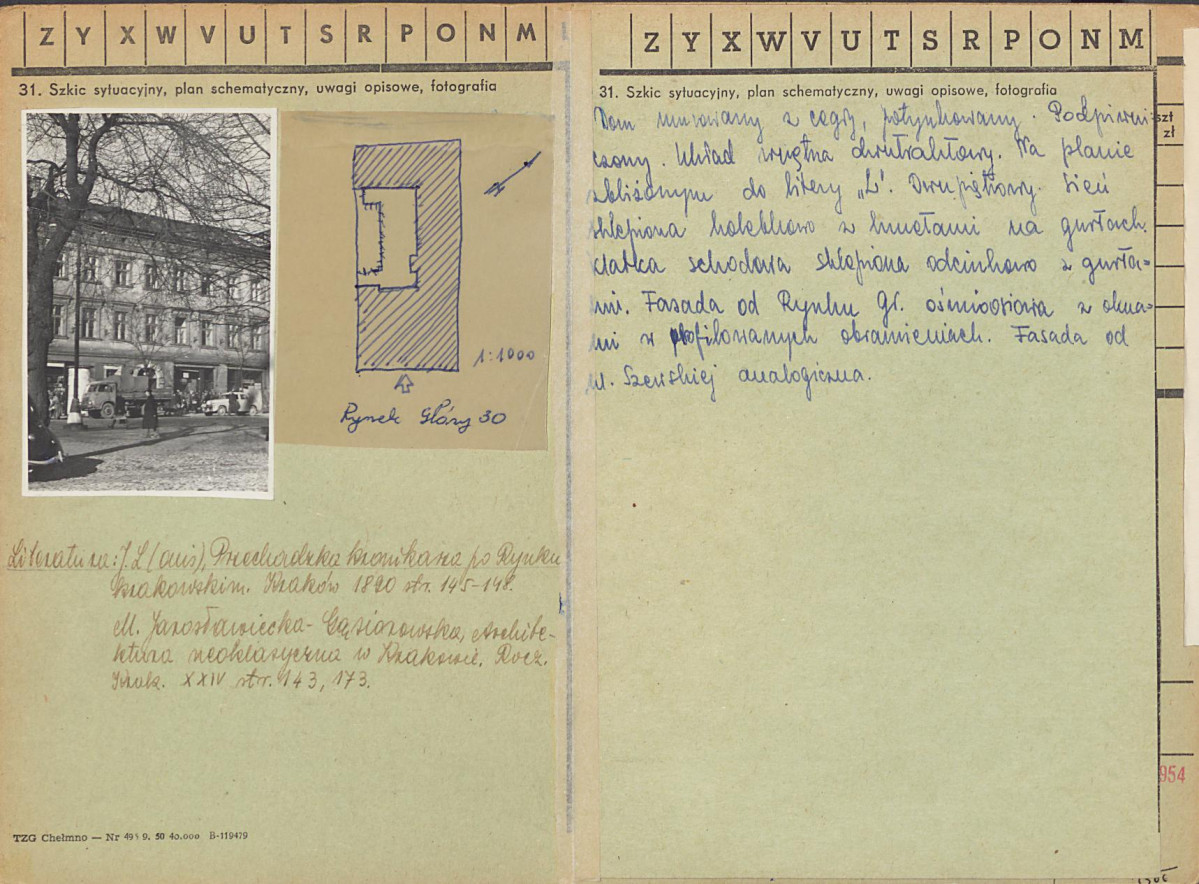 Z Y X W V U T S R P O N M
31. Szkic sytuacyjny, plan schematyczny, uwagi opisowe, fotografia
1:1000
Rynek Główny 30
Literatura: J. L (ouis), Przechadzka kronikarza po Rynku
krakowskim. Kraków 1890 str. 145-148.
M. Jarosławiecka-Gąsiorowska, Archite-
ktura neoklasyczna w Krakowie, Rocz.
Krak. XXIV str. 143, 173.
TZG Chełmno — Nr 49 9. 50 40.000 B-119479
Z Y X W V U T S R P O N M
31. Szkic sytuacyjny, plan schematyczny, uwagi opisowe, fotografia
Dom murowany z cegły, potynkowany. Podpiwni-
czony. Układ wnętrza dwutraktowy. Na planie
zbliżonym do litery „L". Dwupiętrowy. Sień
sklepiona kolebkowo z lunetami na gurtach.
Klatka schodowa sklepiona odcinkowo z gurta-
mi. Fasada od Rynku Gł. ośmioosiowa z okna-
mi w profilowanych obramieniach. Fasada od
ul. Szewskiej analogiczna.
szt
zł
954